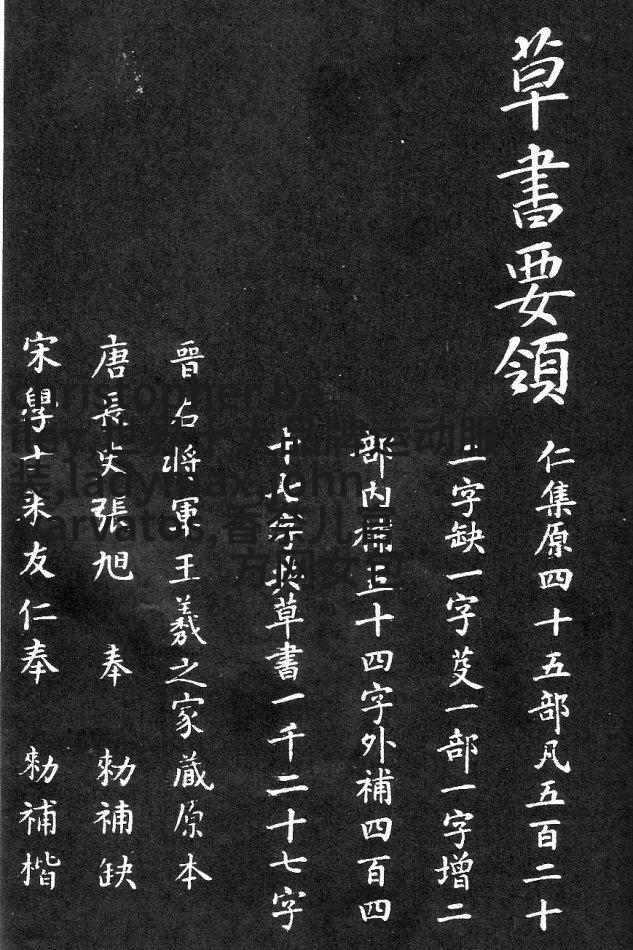 草書要領
仁集原四十五部凡五百二十
二字缺一字芟一部一字增二
部内標五十四字外補四百四
十九字共草書一千二十七字
晉右將軍王羲之家藏原本
唐長史張旭 奉 勅補缺
宋學士米友仁奉 勅補楷
christopher ba
iley,世界十大品牌,运动服
装,ladymax,john
varvatos,香奈儿官
方网女包